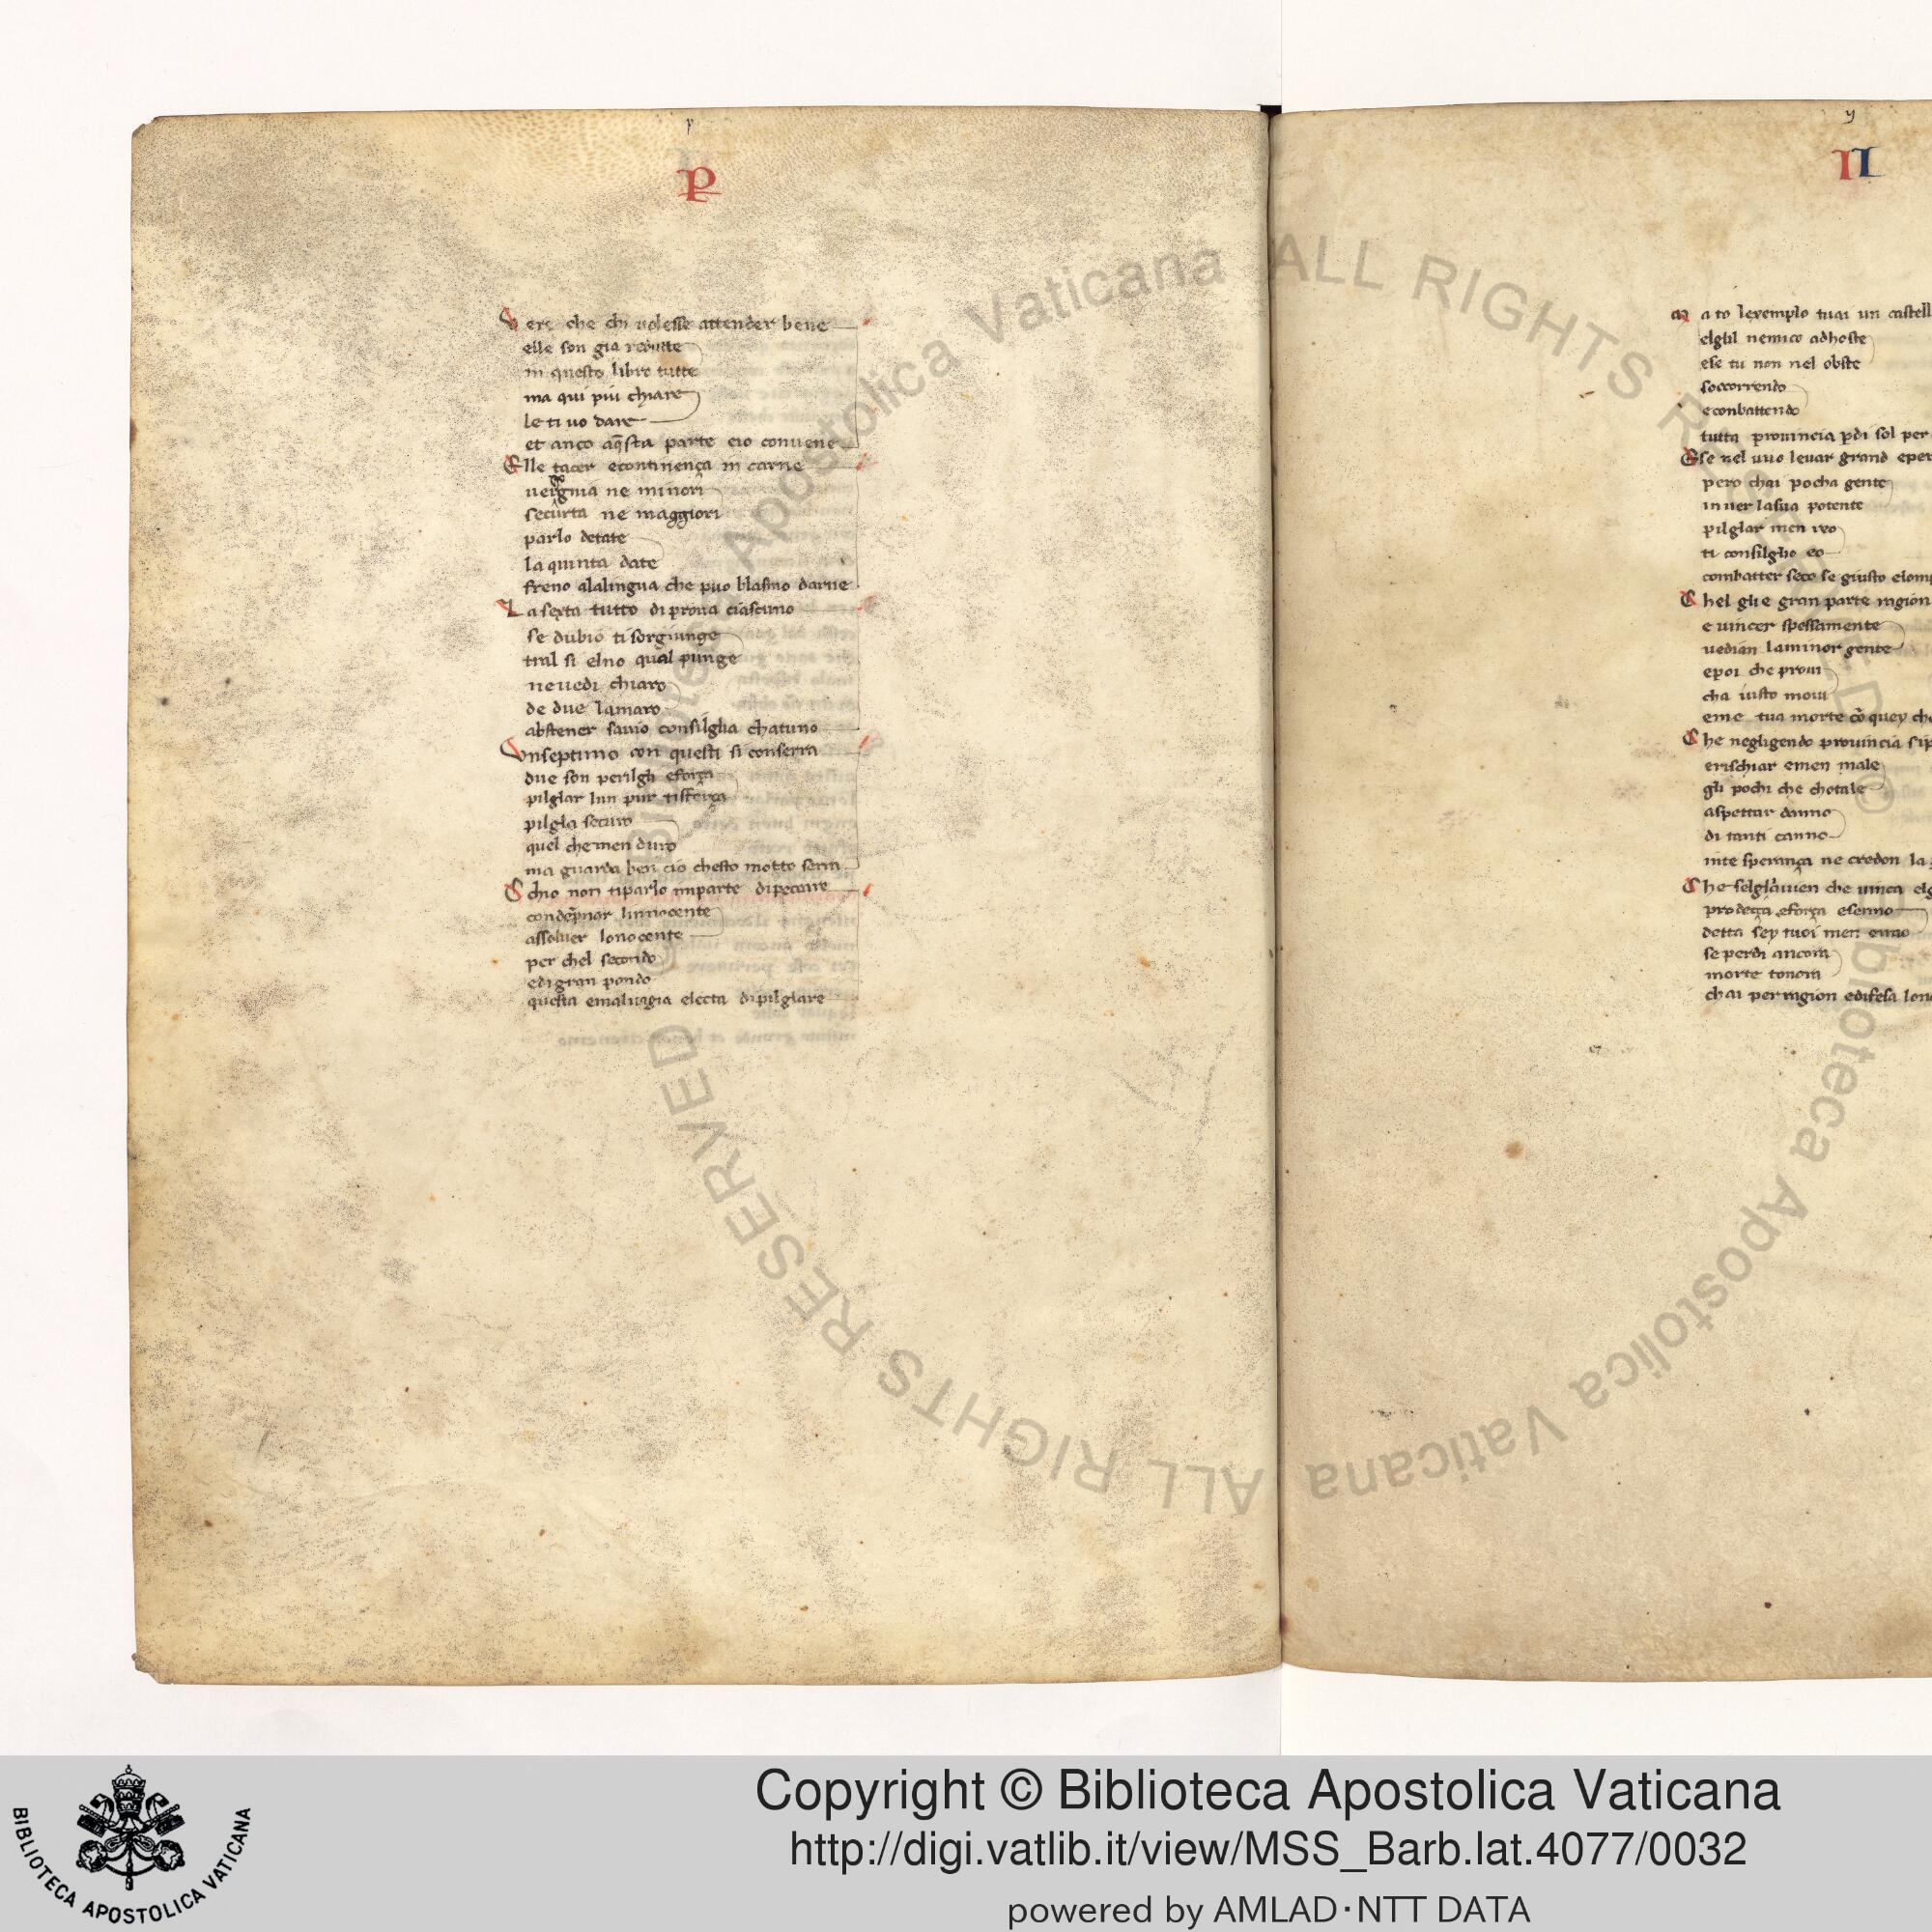 P
Vere che chi volesse attender bene
elle son gia redutte
in questo libro tutte
ma qui piu chiare
le ti vo dare
et anco aq̄sta parte cio convene
Elle tacer econtinença in carne
vergogna ne minori
securta ne maggiori
parlo detate
la quinta date
freno alalingua che puo blasmo darne
La sexta tutto di prova ciascuno
se dubio ti sorgiunge
tral si elno qual punge
ne vedi chiaro
de due lamaro
abstener savio consilglia chatuno
Un septimo con questi si conserra
due son perilgli eforça
pilglar lun pur tisforça
pilgla securo
quel chemen duro
ma guarda ben cio chesto motto serra
Echio non tiparlo imparte dipeccare
condēpnar linnocente
assolver lonocente
per chel secondo
edigran pondo
questa emalvagia electa dipilglare
II
a to lexemplo tuai un castell
elglil nemico adhoste
ese tu non nel obste
soccorrendo
econbattendo
tutta provincia pdi sol per
Ese nel vuo levar grand eper
pero chai pocha gente
inver lasua potente
pilglar men reo
ti consilglio eo
combatter seco se giusto elom
Chel glie gran parte ragion
e vincer spessamente
vedian laminor gente
epoi che provi
cha iusto movi
eme tua morte cō quey ch
Che negligendo provincia si p
erischiar emen male
gli pochi che chotale
aspettar danno
di tanti canno
inte sperança ne credon la
Che selglaven che vinca elg
prodeça eforça esenno
detta sey tuoi men enno
se perdi ancora
morte tonora
chai per ragion edifesa lon
Copyright © Biblioteca Apostolica Vaticana
http://digi.vatlib.it/view/MSS_Barb.lat.4077/0032
powered by AMLAD·NTT DATA
BIBLIOTECA APOSTOLICA VATICANA
© Biblioteca Apostolica Vaticana ALL RIGHTS RESERVED
© Biblioteca Apostolica Vaticana ALL RIGHTS RESERVED